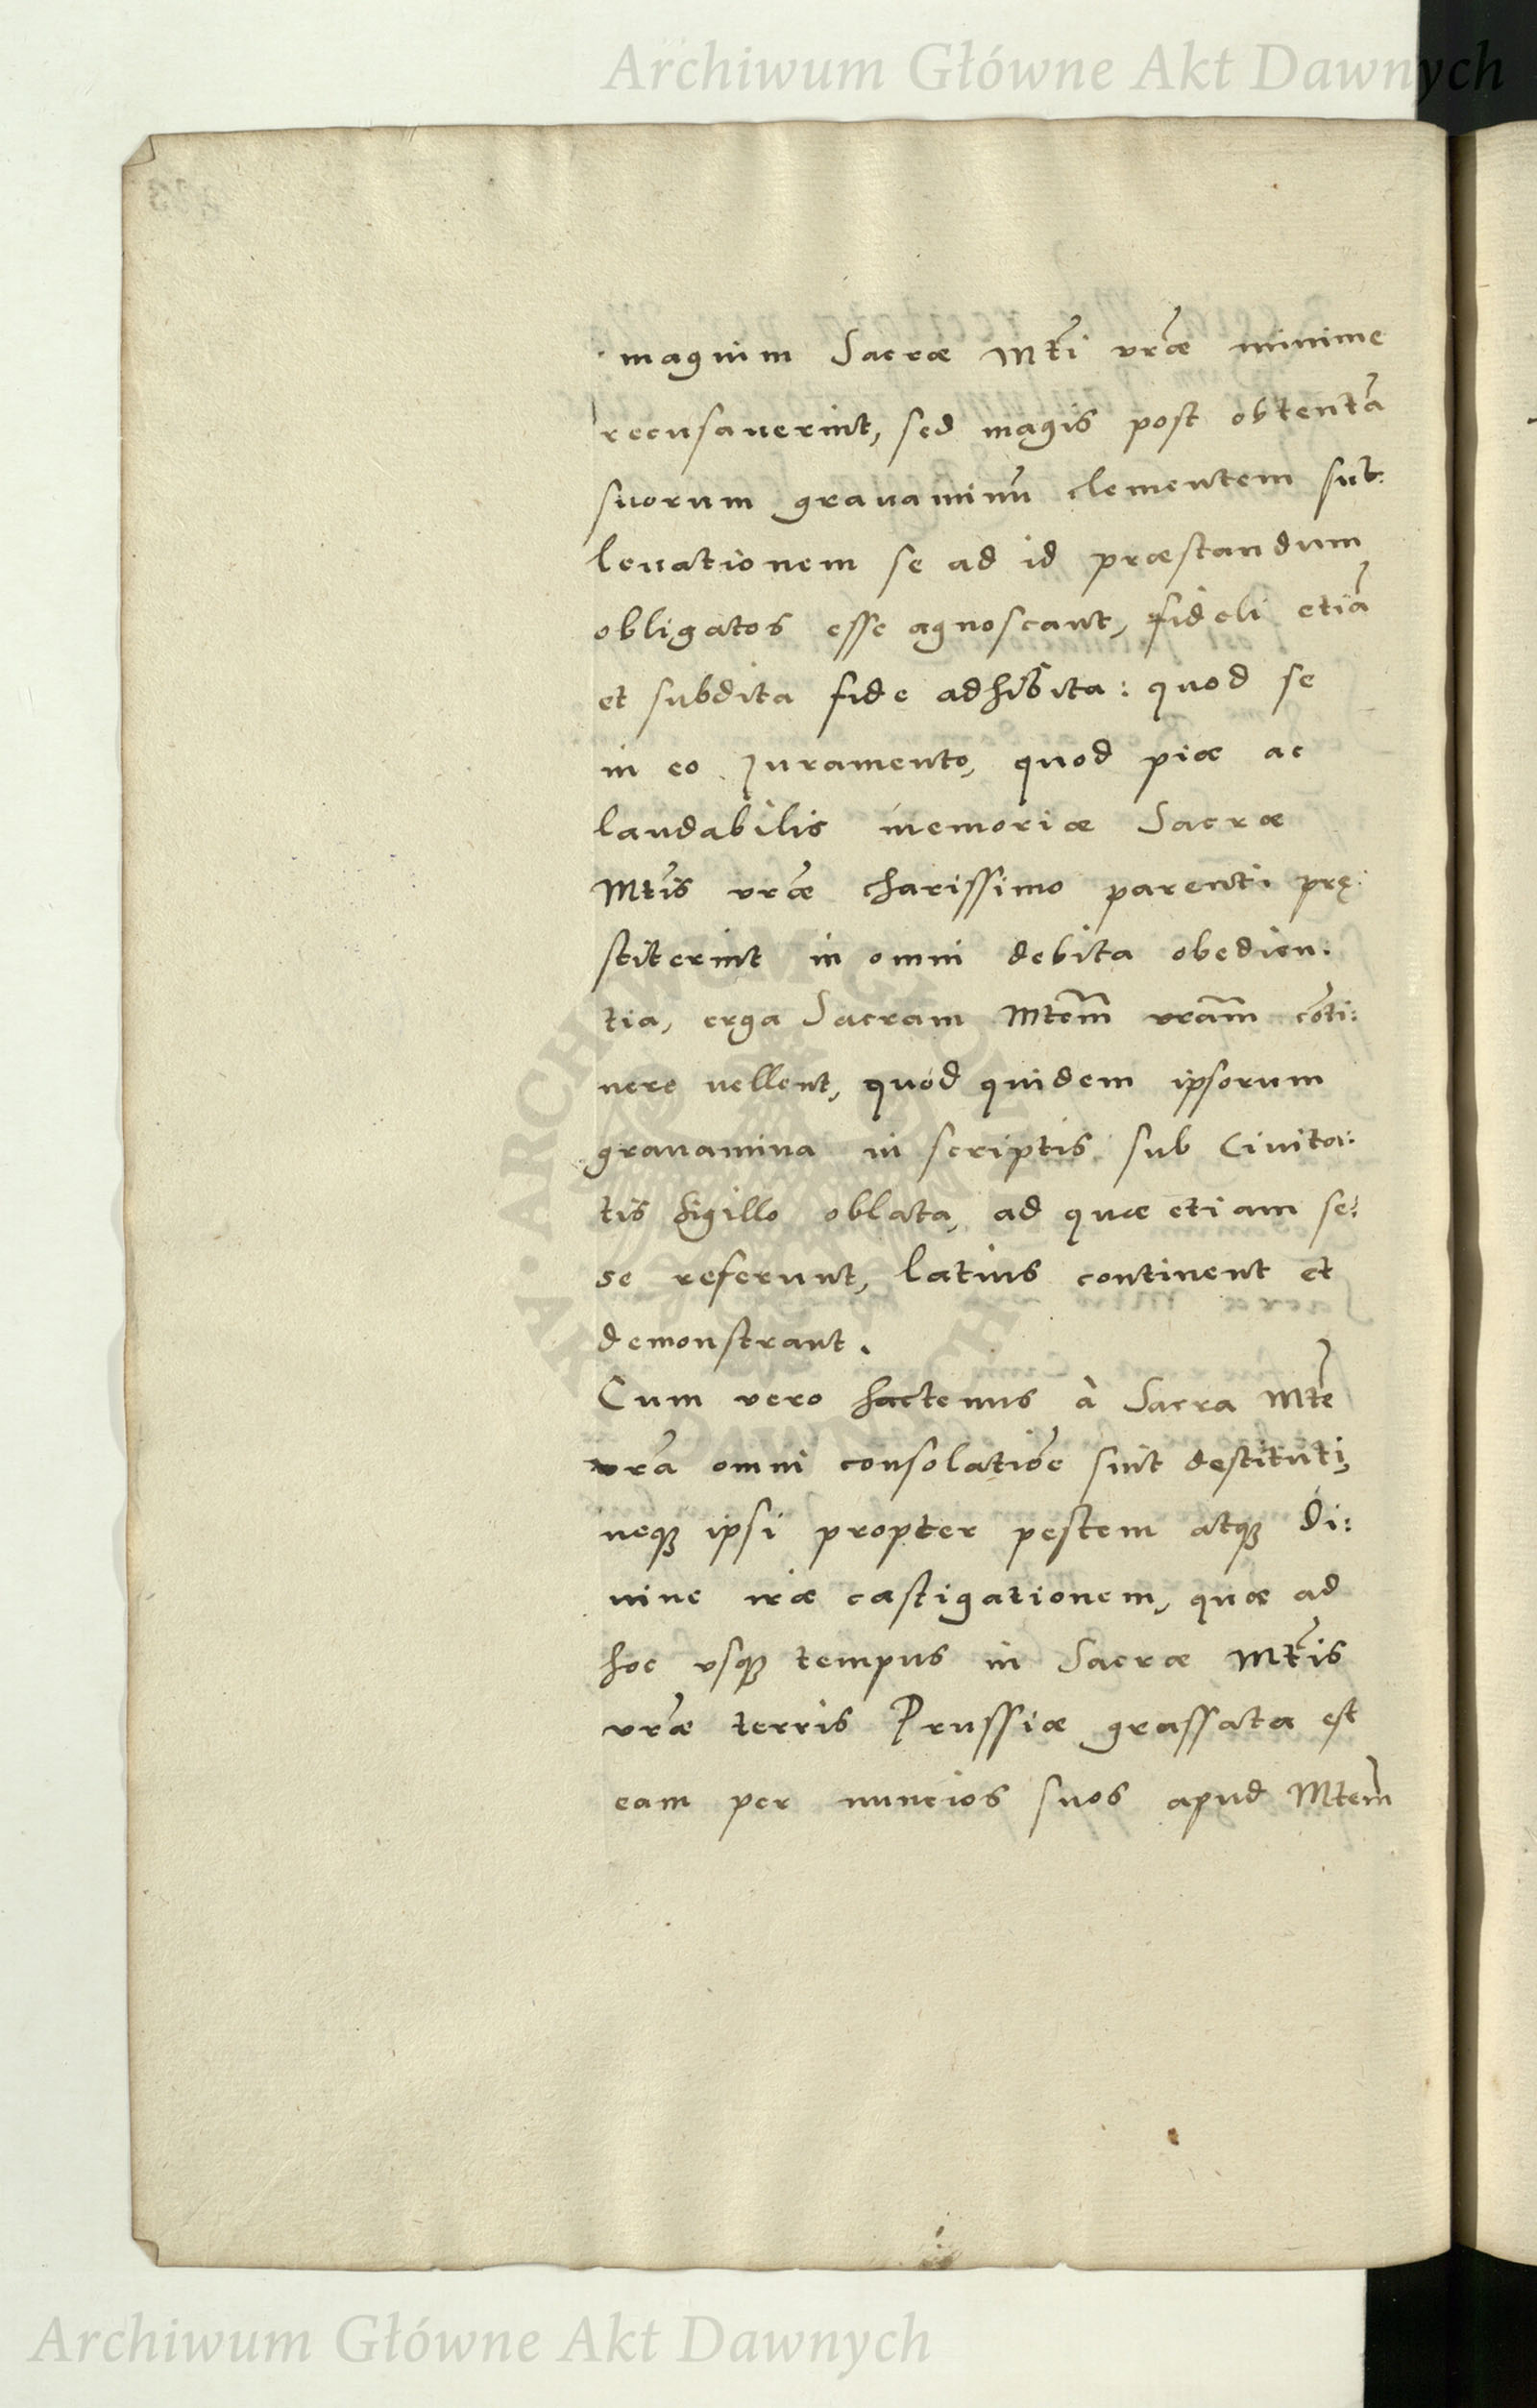 Archiwum Główne Akt Dawnych
magium Sacræ Mti vræ minime
recusauerint, sed magis post obtentã
suorum grauaminũ clementem sub:
leuationem se ad id præstandum
obligatos esse agnoscant, fideli etiã
et subdita fide adhibita: quod se
in eo Juramento, quod piæ ac
laudabilis memoriæ Sacræ
Mtis vræ charissimo parenti prę:
stiterint in omni debita obedien:
tia, erga Sacram Mtem vram cõti:
nere vellent, quod quidem ipsorum
grauamina in scriptis sub Ciuita:
tis sigillo oblata, ad quæ etiam se:
se referunt, latius continent et
demonstrant.
Cum vero hactenus à Sacra Mte
vrã omni consolatiõe sint destituti,
neqȝ ipsi propter pestem atqȝ Di:
uine iræ castigationem, quæ ad
hoc vsqȝ tempus in Sacræ Mtis
vræ terris Prussiæ grassata est
eam per nuncios suos apud Mtem
Archiwum Główne Akt Dawnych